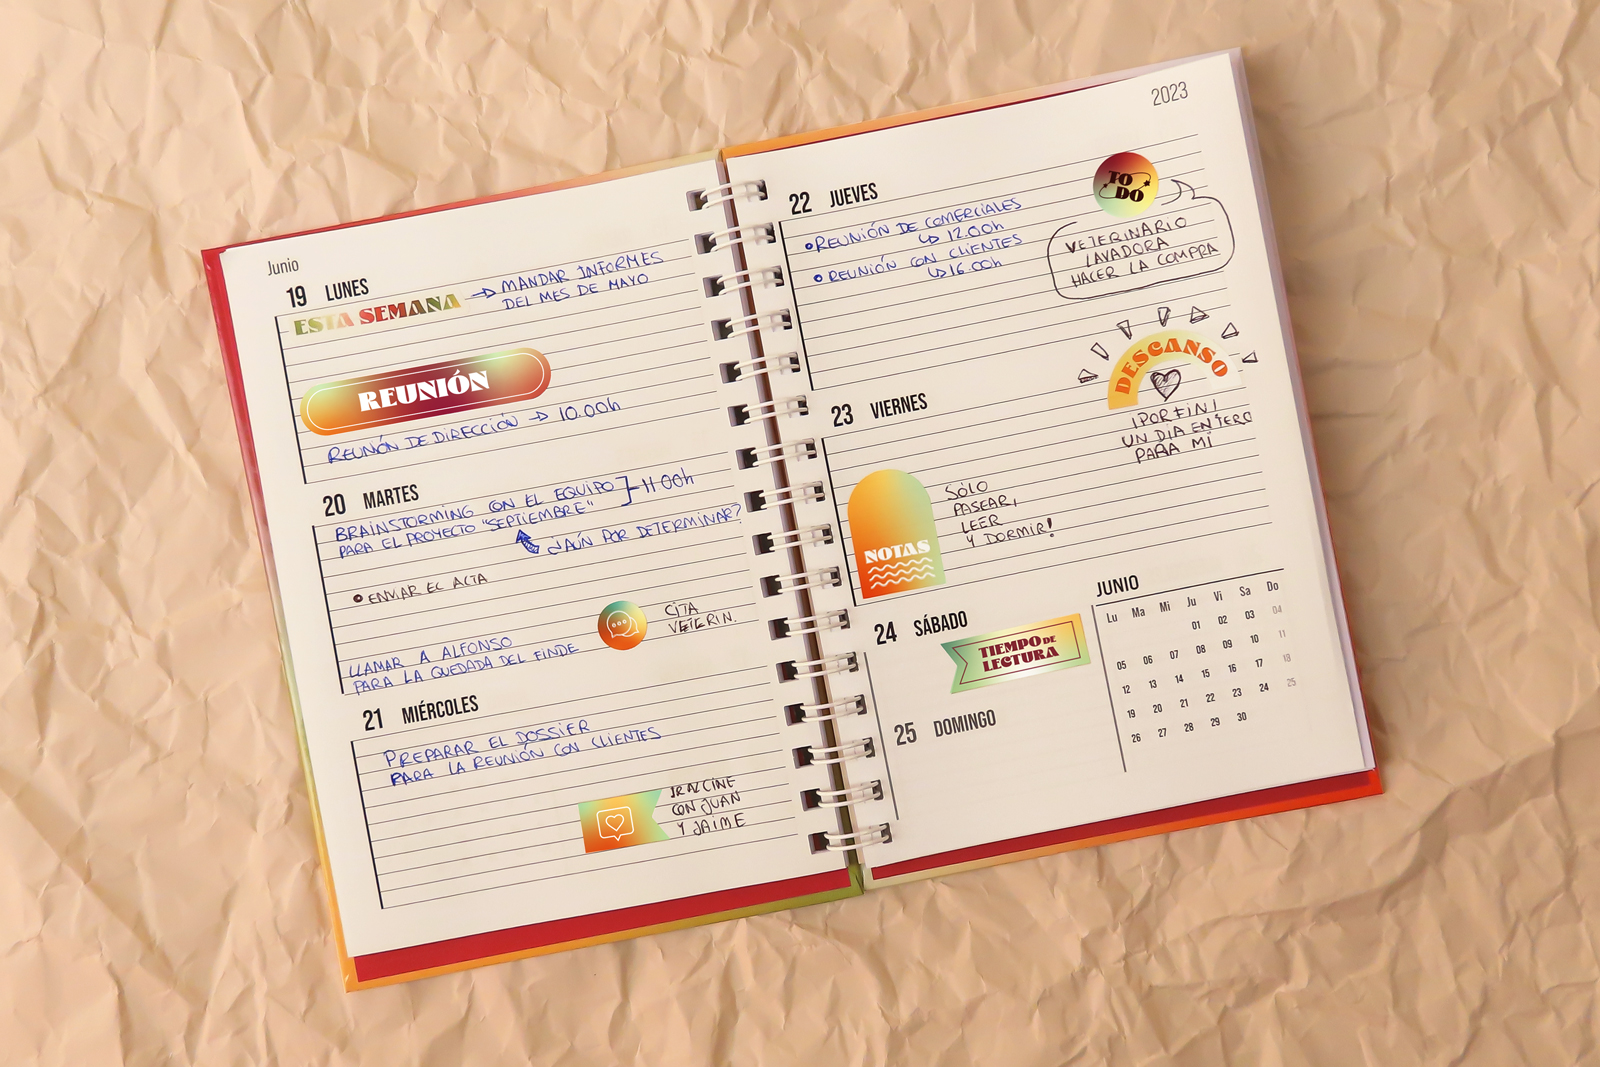 Junio
19 LUNES
ESTA SEMANA → MANDAR INFORMES
DEL MES DE MAYO
REUNIÓN
REUNIÓN DE DIRECCIÓN → 10.00h
20 MARTES
BRAINSTORMING CON EL EQUIPO
PARA EL PROYECTO "SEPTIEMBRE"
11.00h
¿AÚN POR DETERMINAR?
• ENVIAR EL ACTA
CITA
VETERIN.
LLAMAR A ALFONSO
PARA LA QUEDADA DEL FINDE
21 MIÉRCOLES
PREPARAR EL DOSSIER
PARA LA REUNIÓN CON CLIENTES
IR AL CINE
CON JUAN
Y JAIME
2023
22 JUEVES
• REUNIÓN DE COMERCIALES
↳ 12.00h
• REUNIÓN CON CLIENTES
↳ 16.00h
TO
DO
VETERINARIO
LAVADORA
HACER LA COMPRA
23 VIERNES
DESCANSO
¡POR FIN!
UN DÍA ENTERO
PARA MÍ
NOTAS
SÓLO
PASEAR,
LEER
Y DORMIR!
24 SÁBADO
TIEMPO DE
LECTURA
25 DOMINGO
JUNIO
Lu Ma Mi Ju Vi Sa Do
01 02 03 04
05 06 07 08 09 10 11
12 13 14 15 16 17 18
19 20 21 22 23 24 25
26 27 28 29 30